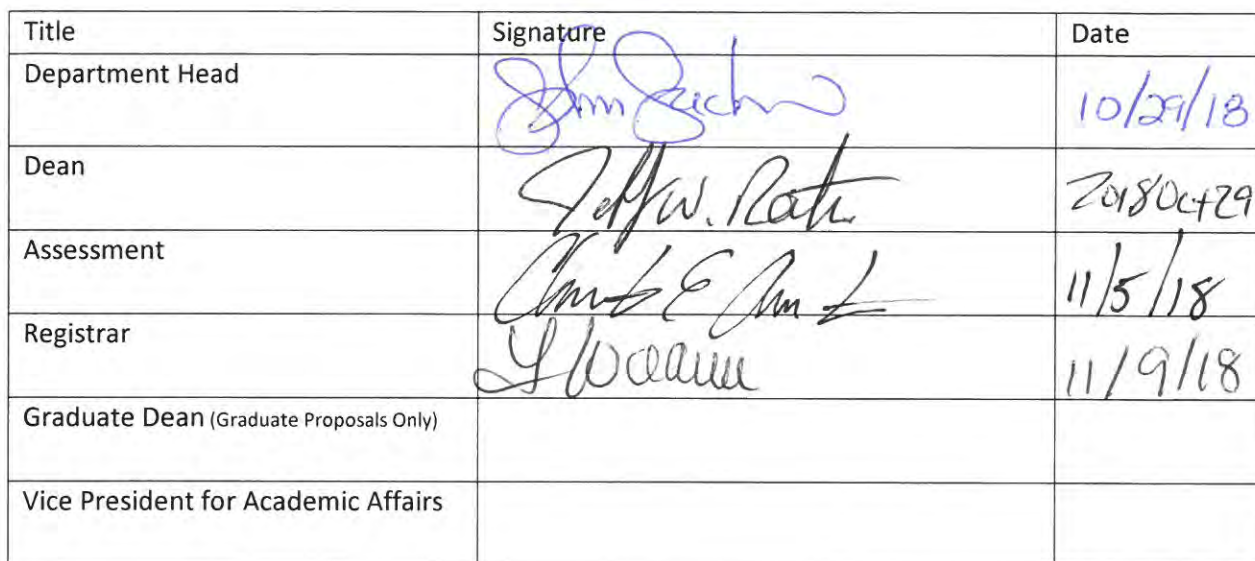 Title Signature Date
Department Head John 10/29/18
Dean Jeff W. 2018Oct29
Assessment E 11/5/18
Registrar 11/9/18
Graduate Dean (Graduate Proposals Only)
Vice President for Academic Affairs